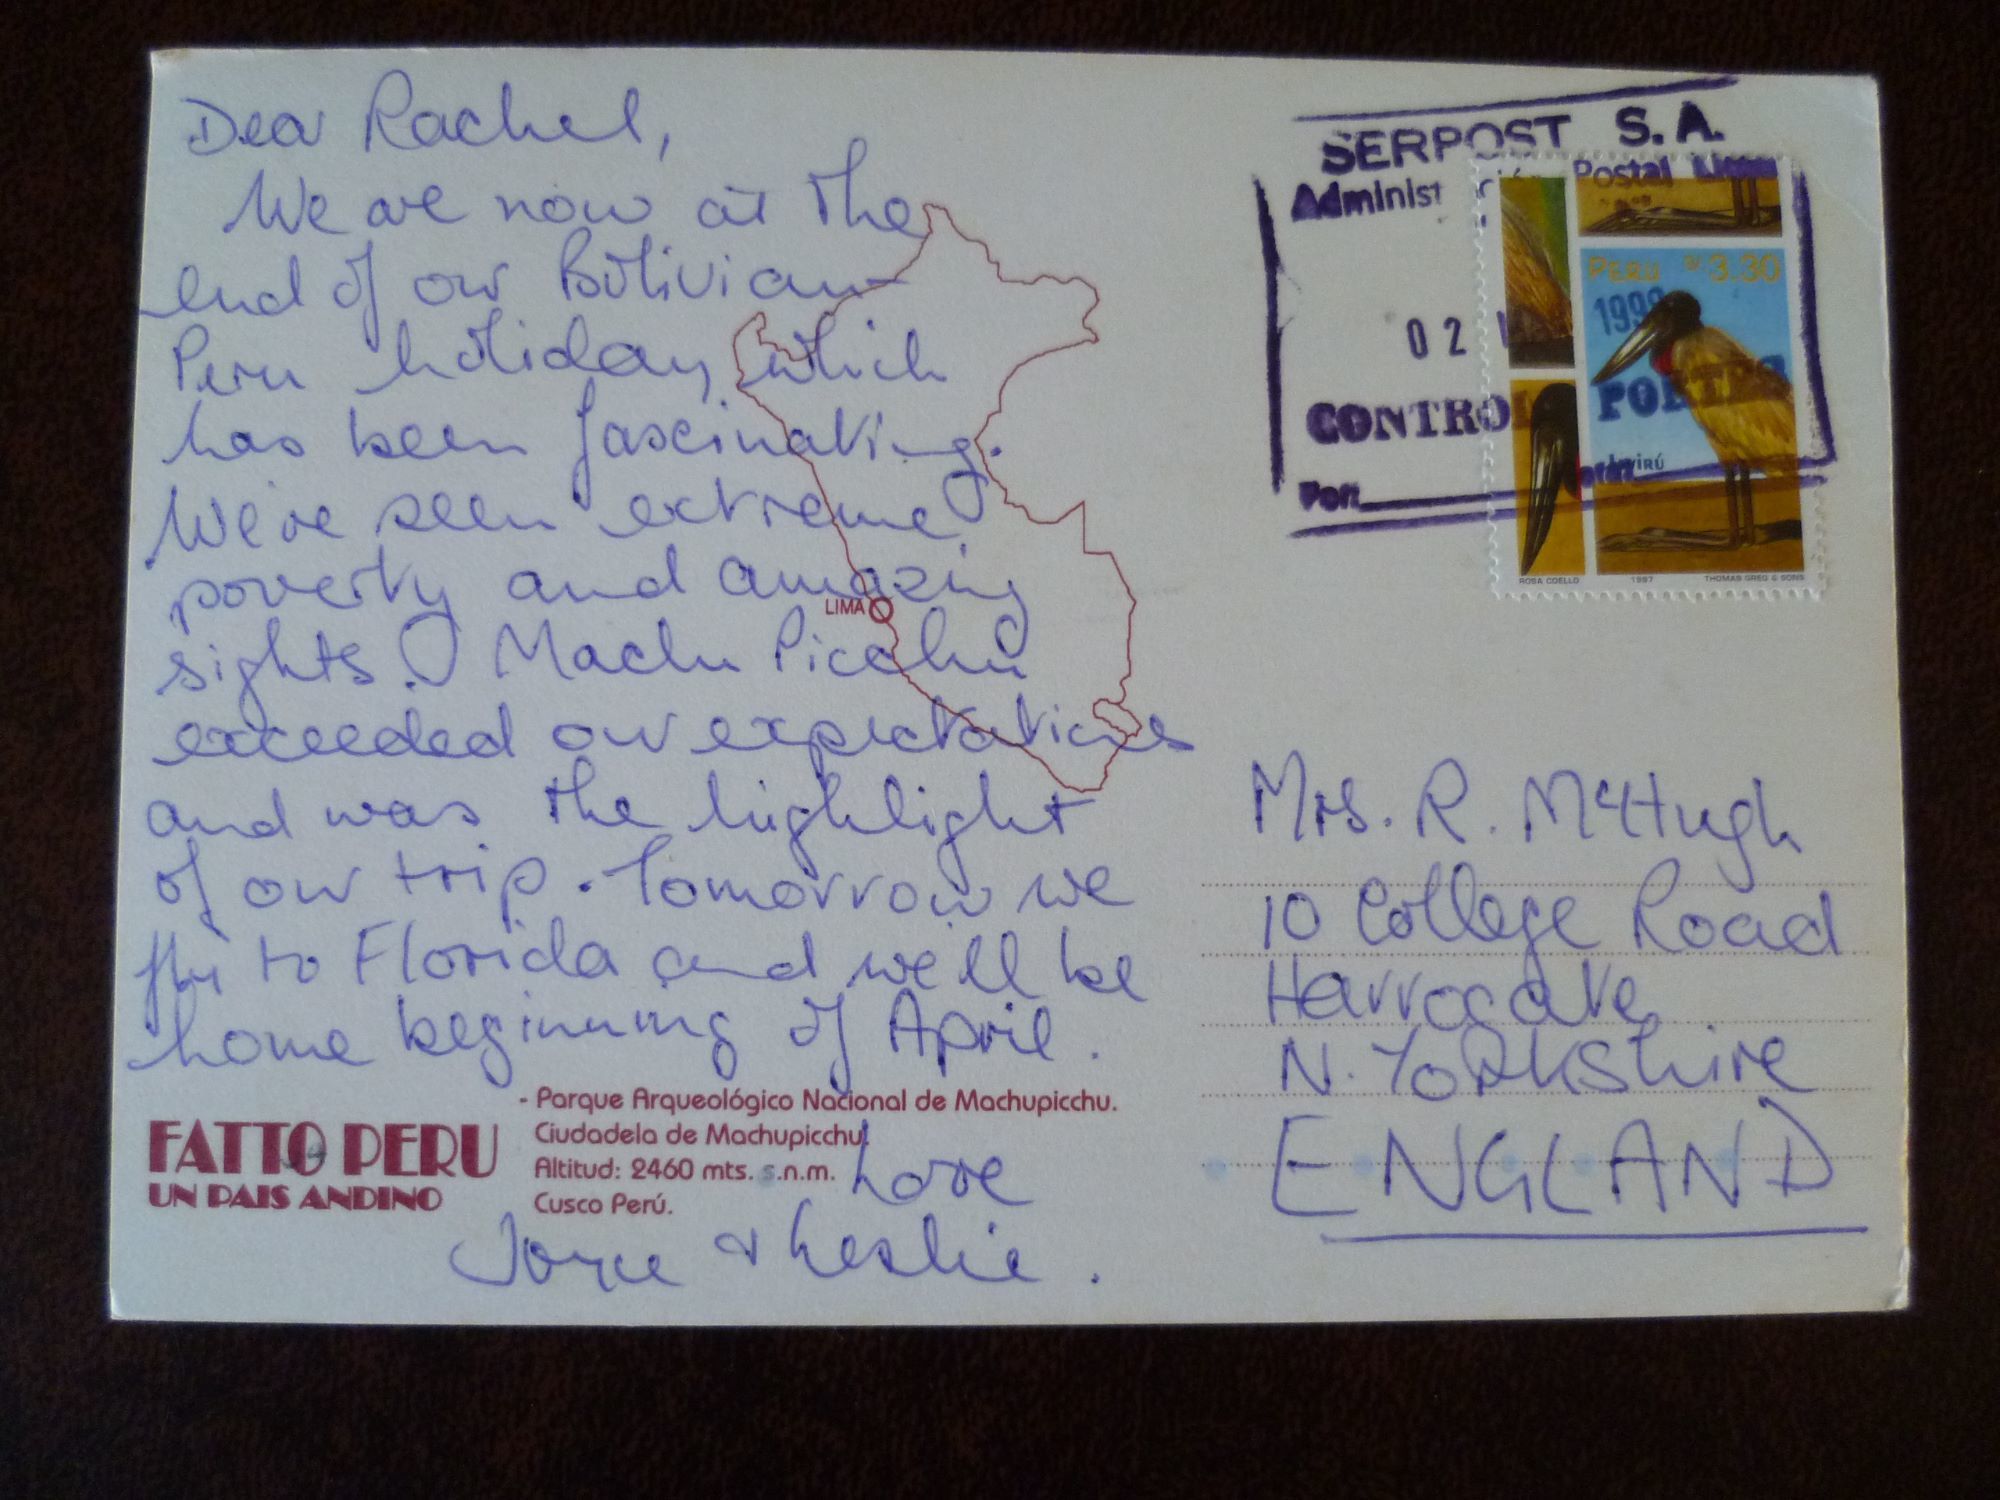 Dear Rachel,
We are now at the
end of our Bolivian
Peru holiday which
has been fascinating.
We've seen extreme
poverty and amazing
sights. Machu Picchu
exceeded our expectations
and was the highlight
of our trip. Tomorrow we
fly to Florida and we'll be
home beginning of April.
Love
Joyce & Leslie.
- Parque Arqueológico Nacional de Machupicchu.
Ciudadela de Machupicchu
Altitud: 2460 mts. s.n.m.
Cusco Perú.
FATTO PERU
UN PAIS ANDINO
LIMA
SERPOST S.A.
Postal Lima
02
1999
CONTROL
PORTES
Por:
PERU S/ 3.30
ROSA COELLO 1997 THOMAS GREG & SONS
Mrs. R. McHugh
10 College Road
Harrogate
N. Yorkshire
ENGLAND